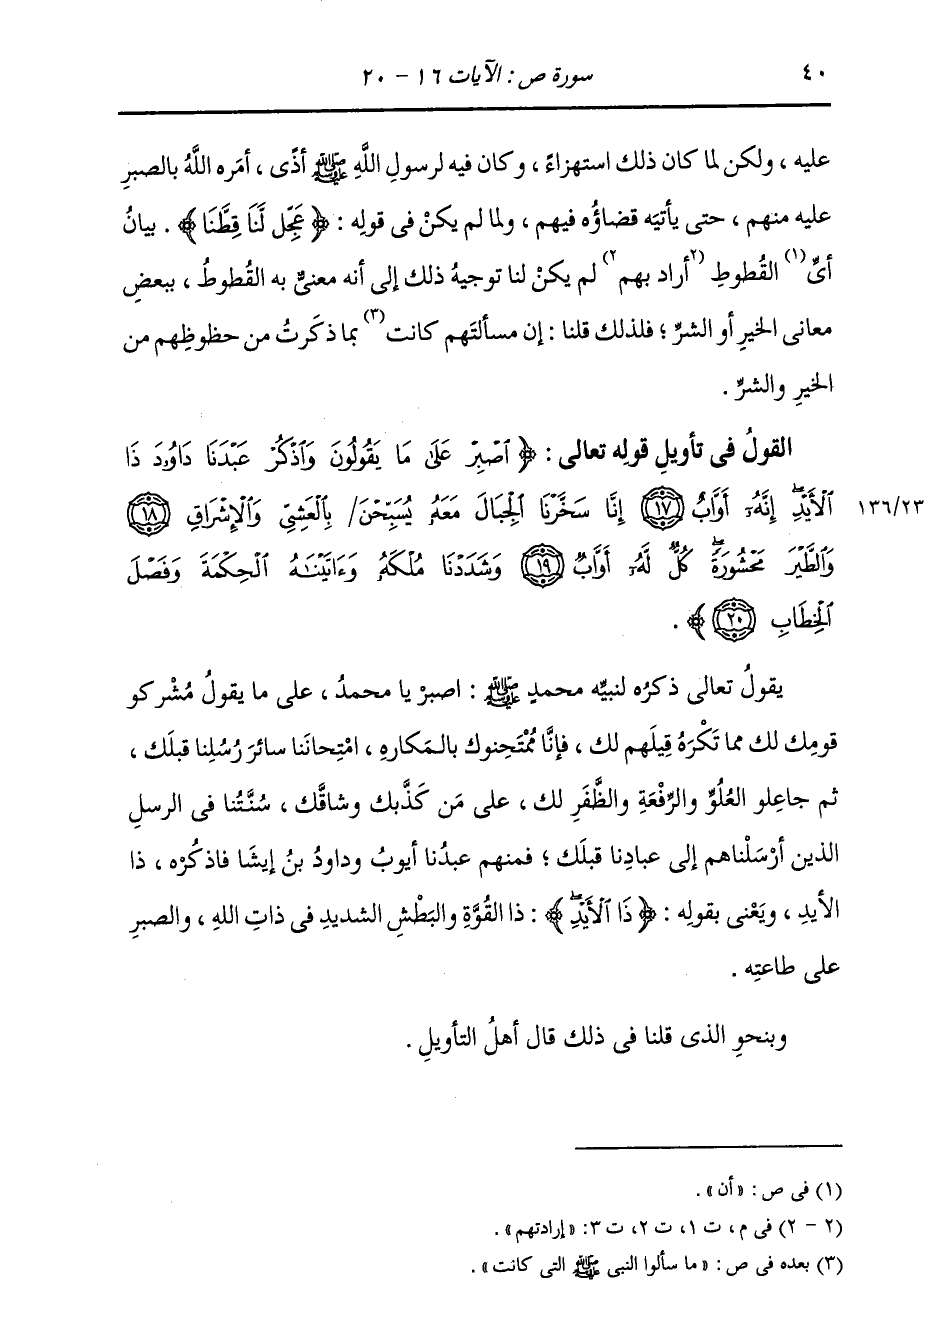 ٤٠
سورة ص : الآيات ١٦ - ٢٠
عليه ، ولكن لما كان ذلك استهزاءً ، وكان فيه لرسولِ اللَّهِ ﷺ أذًى ، أمَره اللَّهُ بالصبرِ
عليه منهم ، حتى يأتيَه قضاؤُه فيهم ، ولما لم يكنْ فى قولِه : ﴿ عَجِّل لَّنَا قِطَّنَا ﴾ . بيانُ
أىِّ(١) القُطوطِ (٢أراد بهم٢) لم يكنْ لنا توجيهُ ذلك إلى أنه معنىٌّ به القُطوطُ ، ببعضِ
معانى الخيرِ أو الشرِّ ؛ فلذلك قلنا : إن مسألتَهم كانت(٣) بما ذكَرتُ من حظوظِهم من
الخيرِ والشرِّ .
القولُ فى تأويلِ قولِه تعالى : ﴿ ٱصْبِرْ عَلَىٰ مَا يَقُولُونَ وَٱذْكُرْ عَبْدَنَا دَاوُۥدَ ذَا
ٱلْأَيْدِۖ إِنَّهُۥٓ أَوَّابٌ ١٧ إِنَّا سَخَّرْنَا ٱلْجِبَالَ مَعَهُۥ يُسَبِّحْنَ/ بِٱلْعَشِىِّ وَٱلْإِشْرَاقِ ١٨
١٣٦/٢٣
وَٱلطَّيْرَ مَحْشُورَةًۖ كُلٌّ لَّهُۥٓ أَوَّابٌ ١٩ وَشَدَدْنَا مُلْكَهُۥ وَءَاتَيْنَٰهُ ٱلْحِكْمَةَ وَفَصْلَ
ٱلْخِطَابِ ٢٠ ﴾ .
يقولُ تعالى ذكرُه لنبيِّه محمدٍ ﷺ : اصبرْ يا محمدُ ، على ما يقولُ مُشْركو
قومِك لك مما تَكْرَهُ قِيلَهم لك ، فإنَّا مُمْتَحِنوك بالمَكارِهِ ، امْتِحانَنا سائرَ رُسُلِنا قبلَك ،
ثم جاعِلو العُلُوِّ والرِّفْعَةِ والظَّفَرِ لك ، على مَن كَذَّبك وشاقَّك ، سُنَّتُنا فى الرسلِ
الذين أرْسَلْناهم إلى عبادِنا قبلَك ؛ فمنهم عبدُنا أيوبُ وداودُ بنُ إيشَا فاذكُرْه ، ذا
الأيدِ ، ويَعْنى بقولِه : ﴿ ذَا ٱلْأَيْدِۖ ﴾ : ذا القُوَّةِ والبَطْشِ الشديدِ فى ذاتِ اللهِ ، والصبرِ
على طاعتِه .
وبنحوِ الذى قلنا فى ذلك قال أهلُ التأويلِ .
(١) فى ص : «أن» .
(٢ - ٢) فى م، ت ١، ت ٢، ت ٣: «إرادتهم» .
(٣) بعده فى ص : «ما سألوا النبى ﷺ التى كانت» .